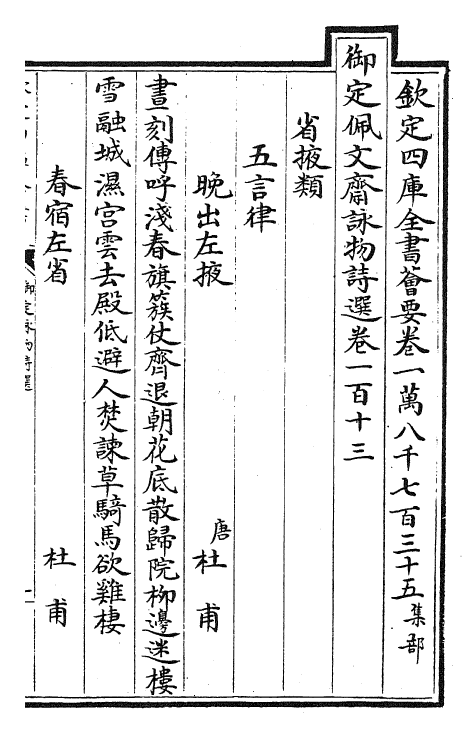 欽定四庫全書薈要卷一萬八千七百三十五 集部
御定佩文齋詠物詩選卷一百十三
省掖類
五言律
晚出左掖 唐 杜甫
晝刻傳呼淺春旗簇仗齊退朝花底散歸院柳邊迷樓
雪融城濕宫雲去殿低避人焚諫草騎馬欲雞棲
春宿左省 杜甫
御定詠物詩選